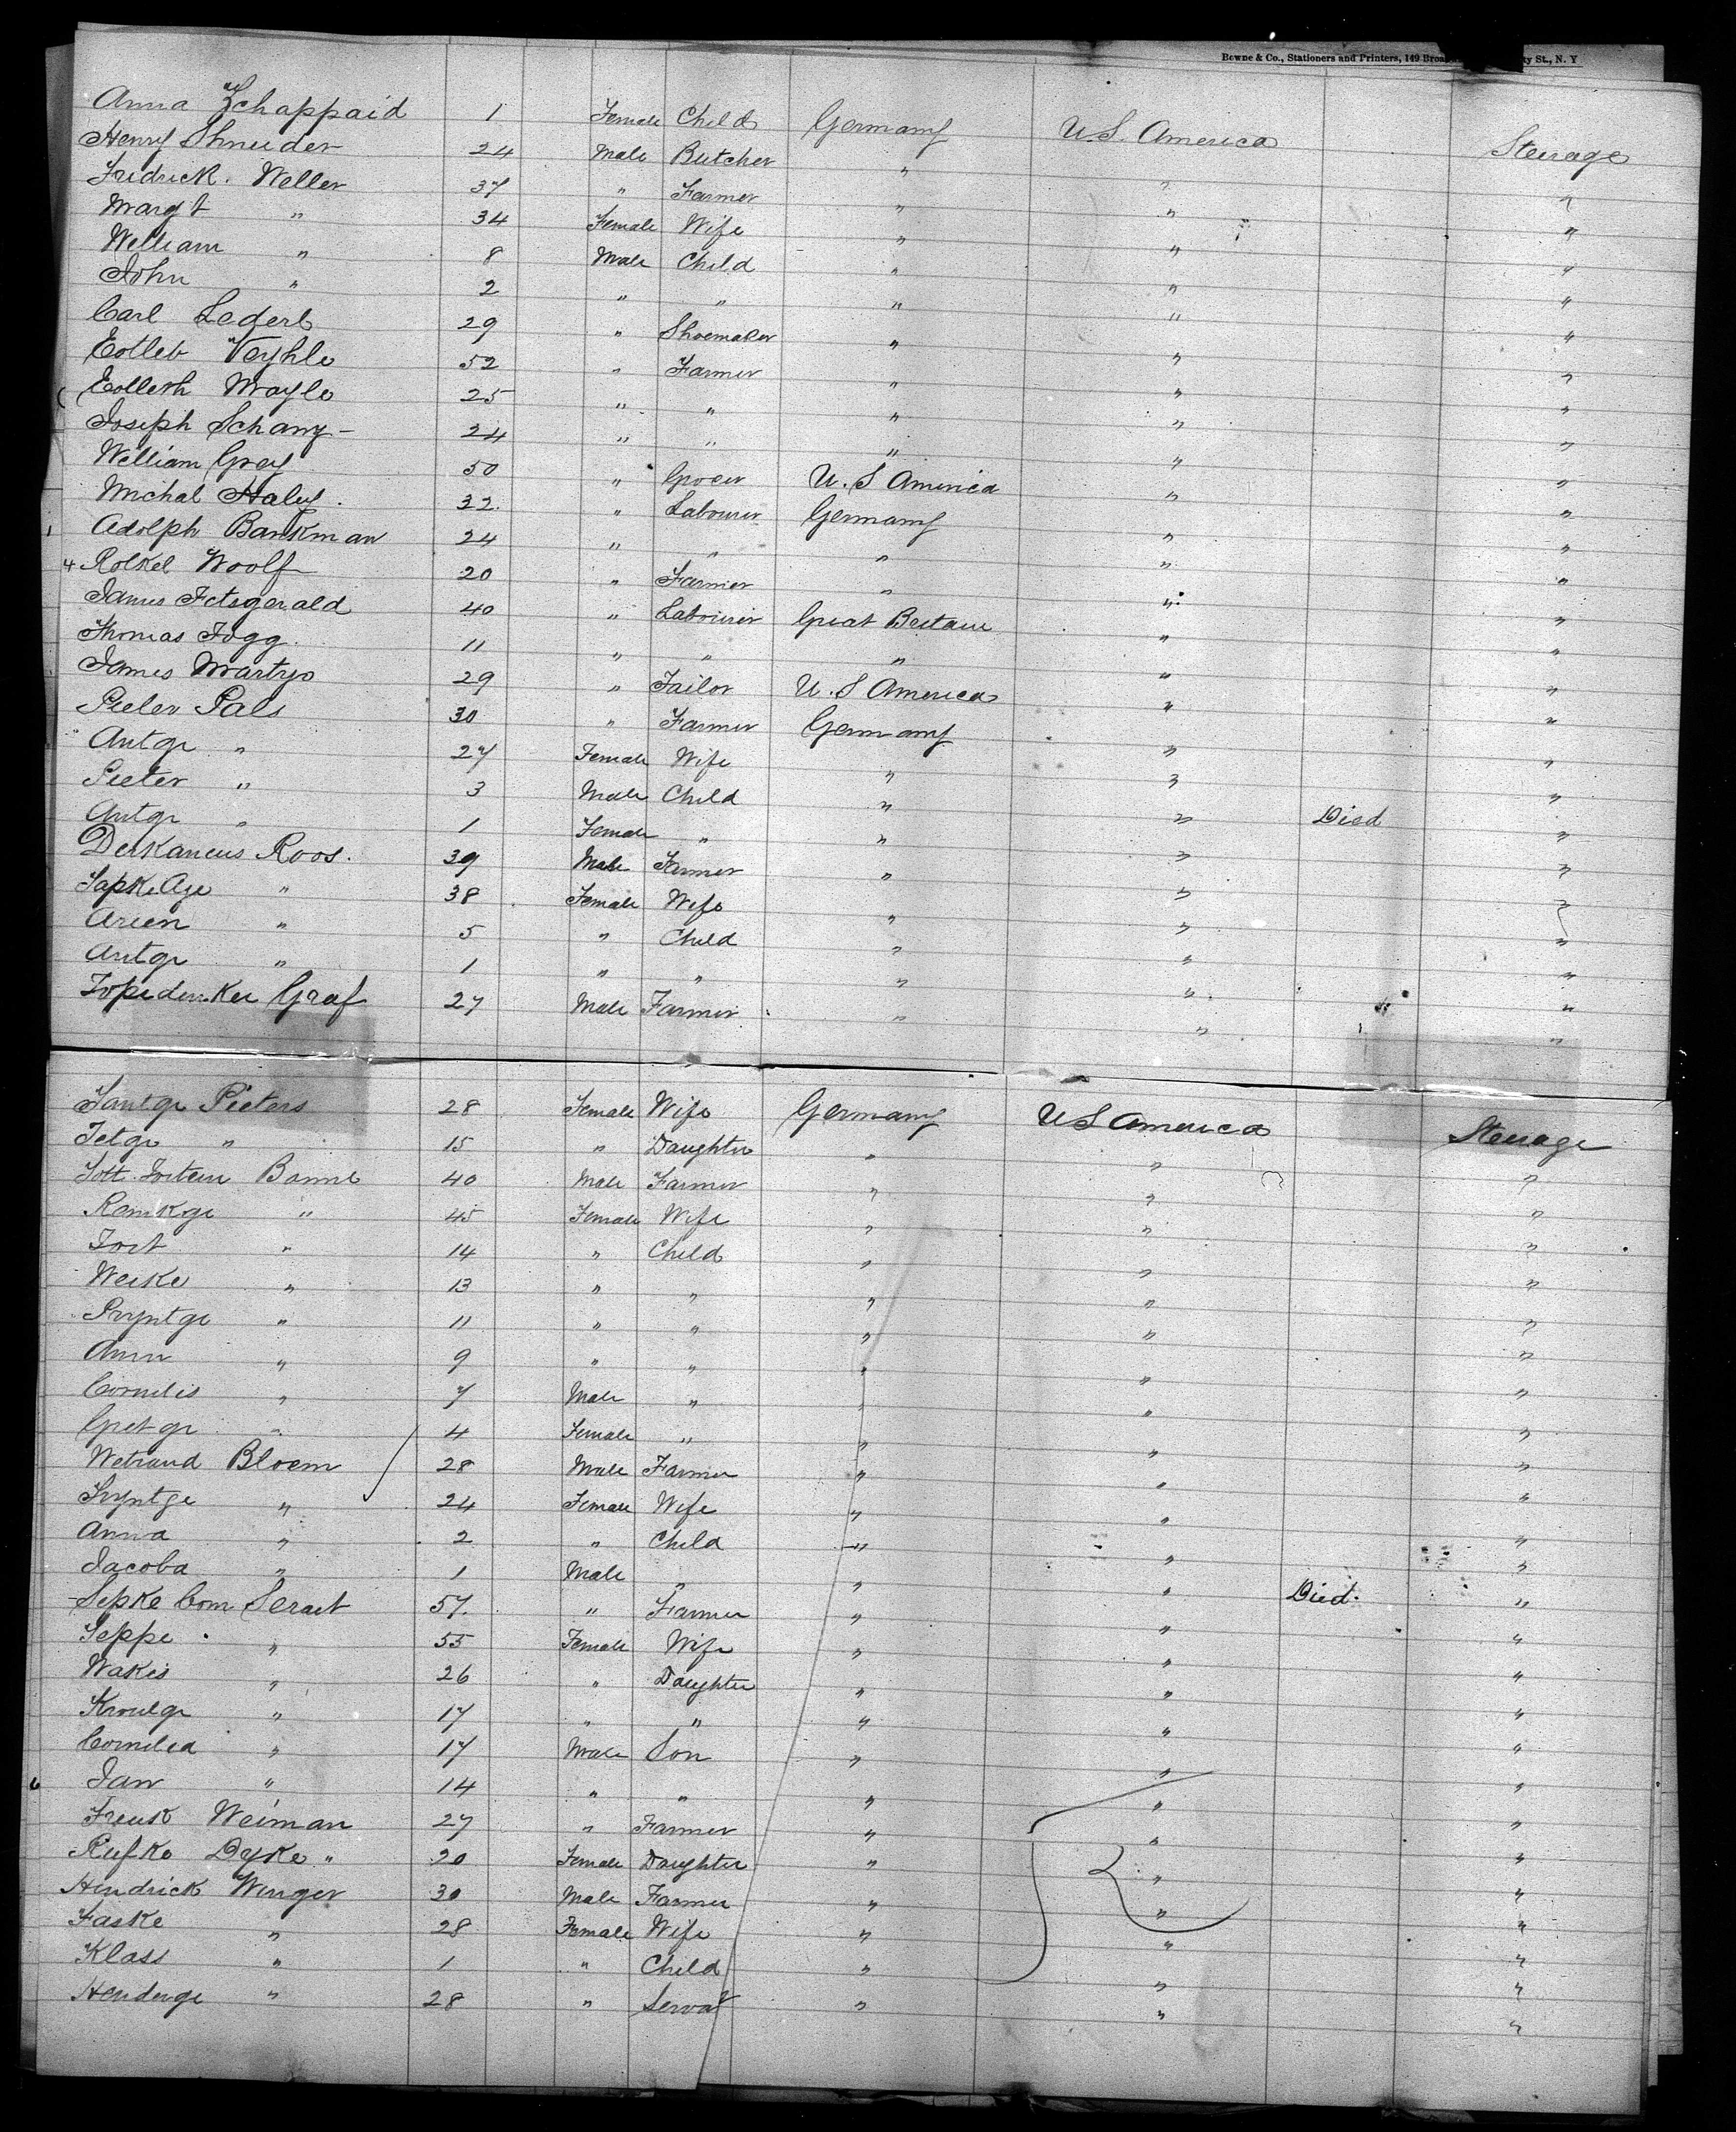 Bowne & Co., Stationers and Printers, 149 Broa ty St., N. Y
Anna Zchappaid 1 Female Child Germany U.S. America Steerage
Henry Shneider 24 Male Butcher " " "
Fredrick. Weller 37 " Farmer " " "
Margt " 34 Female Wife " " "
William " 8 Male Child " " "
John " 2 " " " " "
Carl Lederb 29 " Shoemaker " " "
Eotleb Veyhle 52 " Farmer " " "
Mayle 25 " " " " "
Joseph Schany 24 " " " " "
William Grey 50 " Grocer U.S America " "
Michal Haley. 32. " Labourer Germany " "
Adolph Bankman 24 " " " " "
4 Rolkel Woolf 20 " Farmer " " "
James Fetsgerald 40 " Labourer Great Britain " "
Thomas Fogg. 11 " " " " "
James Martyo 29 " Tailor U.S America " "
Pieter Pals 30 " Farmer Germany " "
Antge " 27 Female Wife " " "
Pieter " 3 Male Child " " "
Antge " 1 Female " " " Died "
Roos. 39 Male Farmer " " "
" 38 Female Wife " " "
Arien " 5 " Child " " "
Antge " 1 " " " " "
Graf 27 Male Farmer " " "
Jantge Pieters 28 Female Wife Germany US America Steerage
Jetge " 15 " Daughter " " "
Banne 40 Male Farmer " " "
Remkge " 45 Female Wife " " "
Jort " 14 " Child " " "
Weike " 13 " " " " "
Pryntge " 11 " " " " "
Anna " 9 " " " " "
Cornelis " 7 Male " " " "
Gretge " 4 Female " " " "
Bloem 28 Male Farmer " " "
Tryntge " 24 Female Wife " " "
Anna " 2 " Child " " "
Jacoba " 1 Male " " " Died. "
Sepke Com Seraet 57. " Farmer " " "
Seppe " 55 Female Wife " " "
Wakis " 26 " Daughter " " "
" 17 " " " " "
Cornelia " 17 Male Son " " "
Jan " 14 " " " " "
Freuk Weiman 27 " Farmer " " "
Rufke Dyke " 20 Female Daughter " " "
Hendrick Winger 30 Male Farmer " " "
Faske " 28 Female Wife " " "
Klass " 1 " Child " " "
Henderge " 28 " Servat " " "